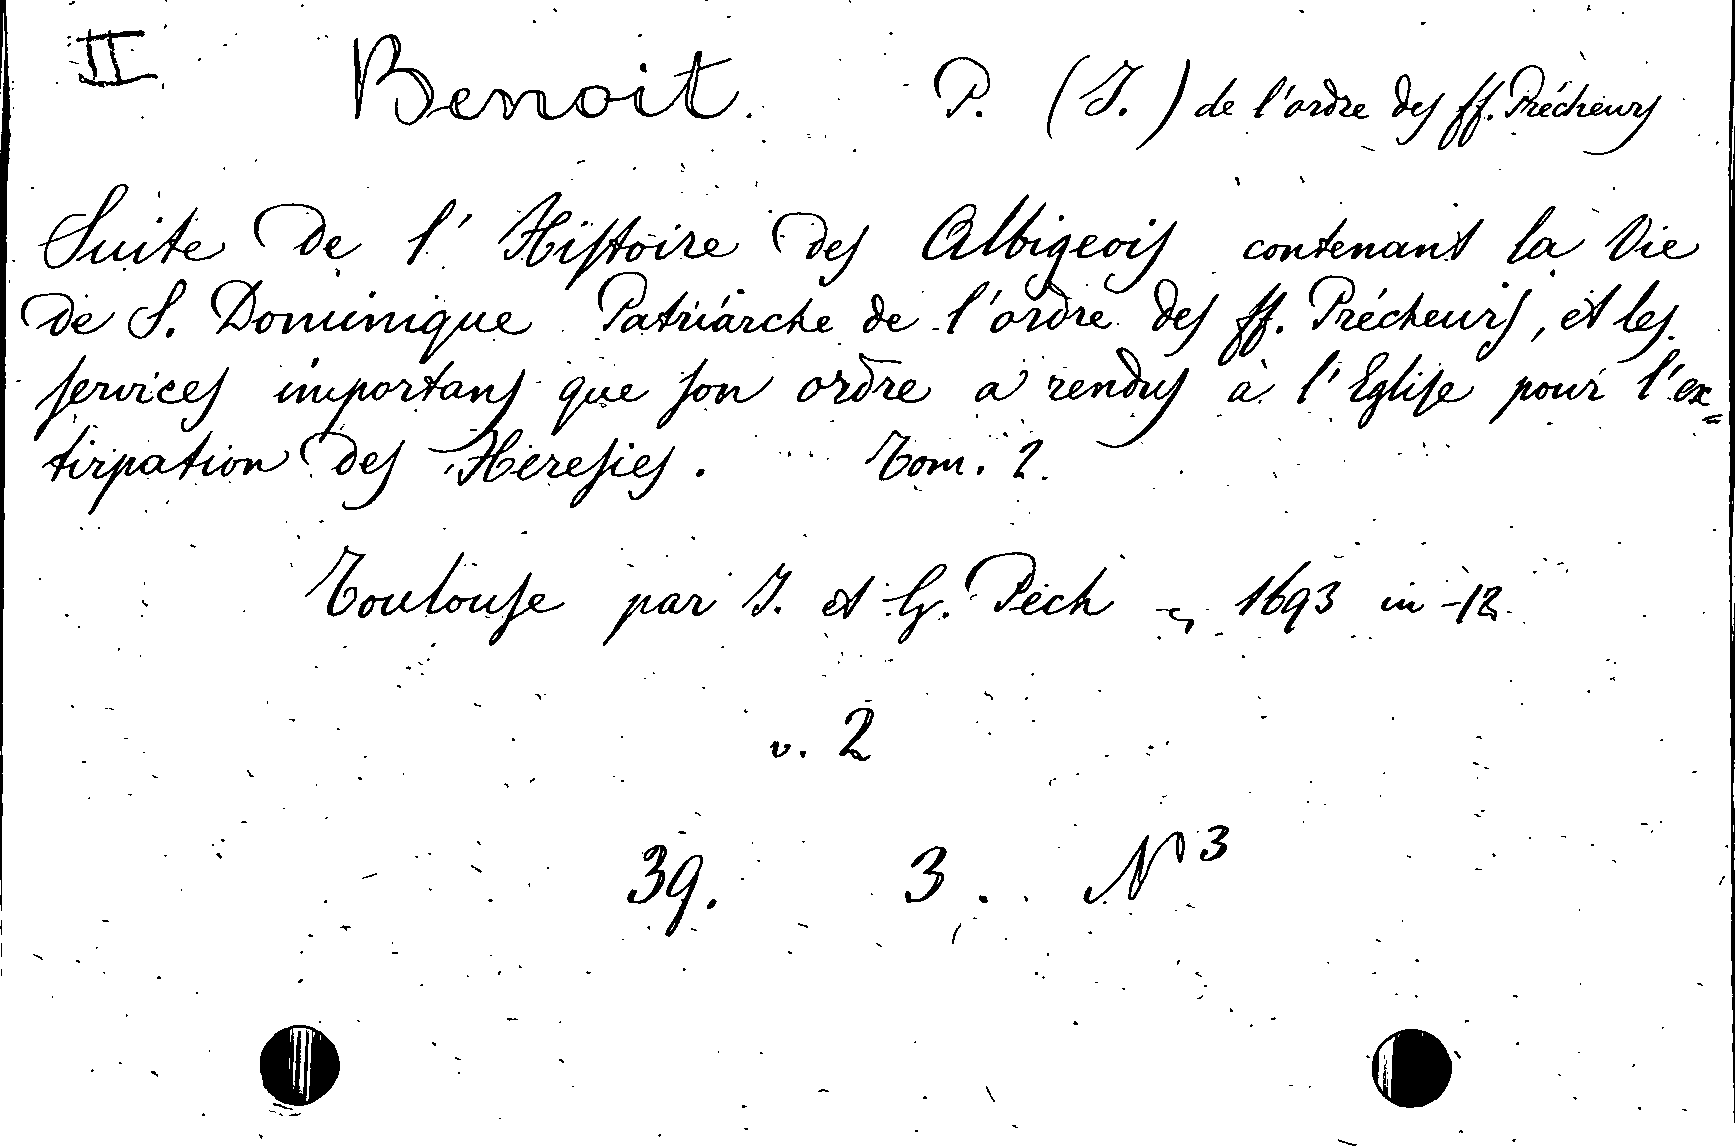 II Benoit. P. (J.) de l'ordre des ff. Précheurs
Suite de l'Histoire des Albigeois contenant la Vie
de S. Dominique Patriarche de l'ordre des ff. Précheurs, et les
services importans que son ordre a rendus à l'Eglise pour l'ex=
tirpation des Heresies. Tom. 2.
Toulouse par J. et G. Pech 1693 in-12
v. 2
39. 3. N 3